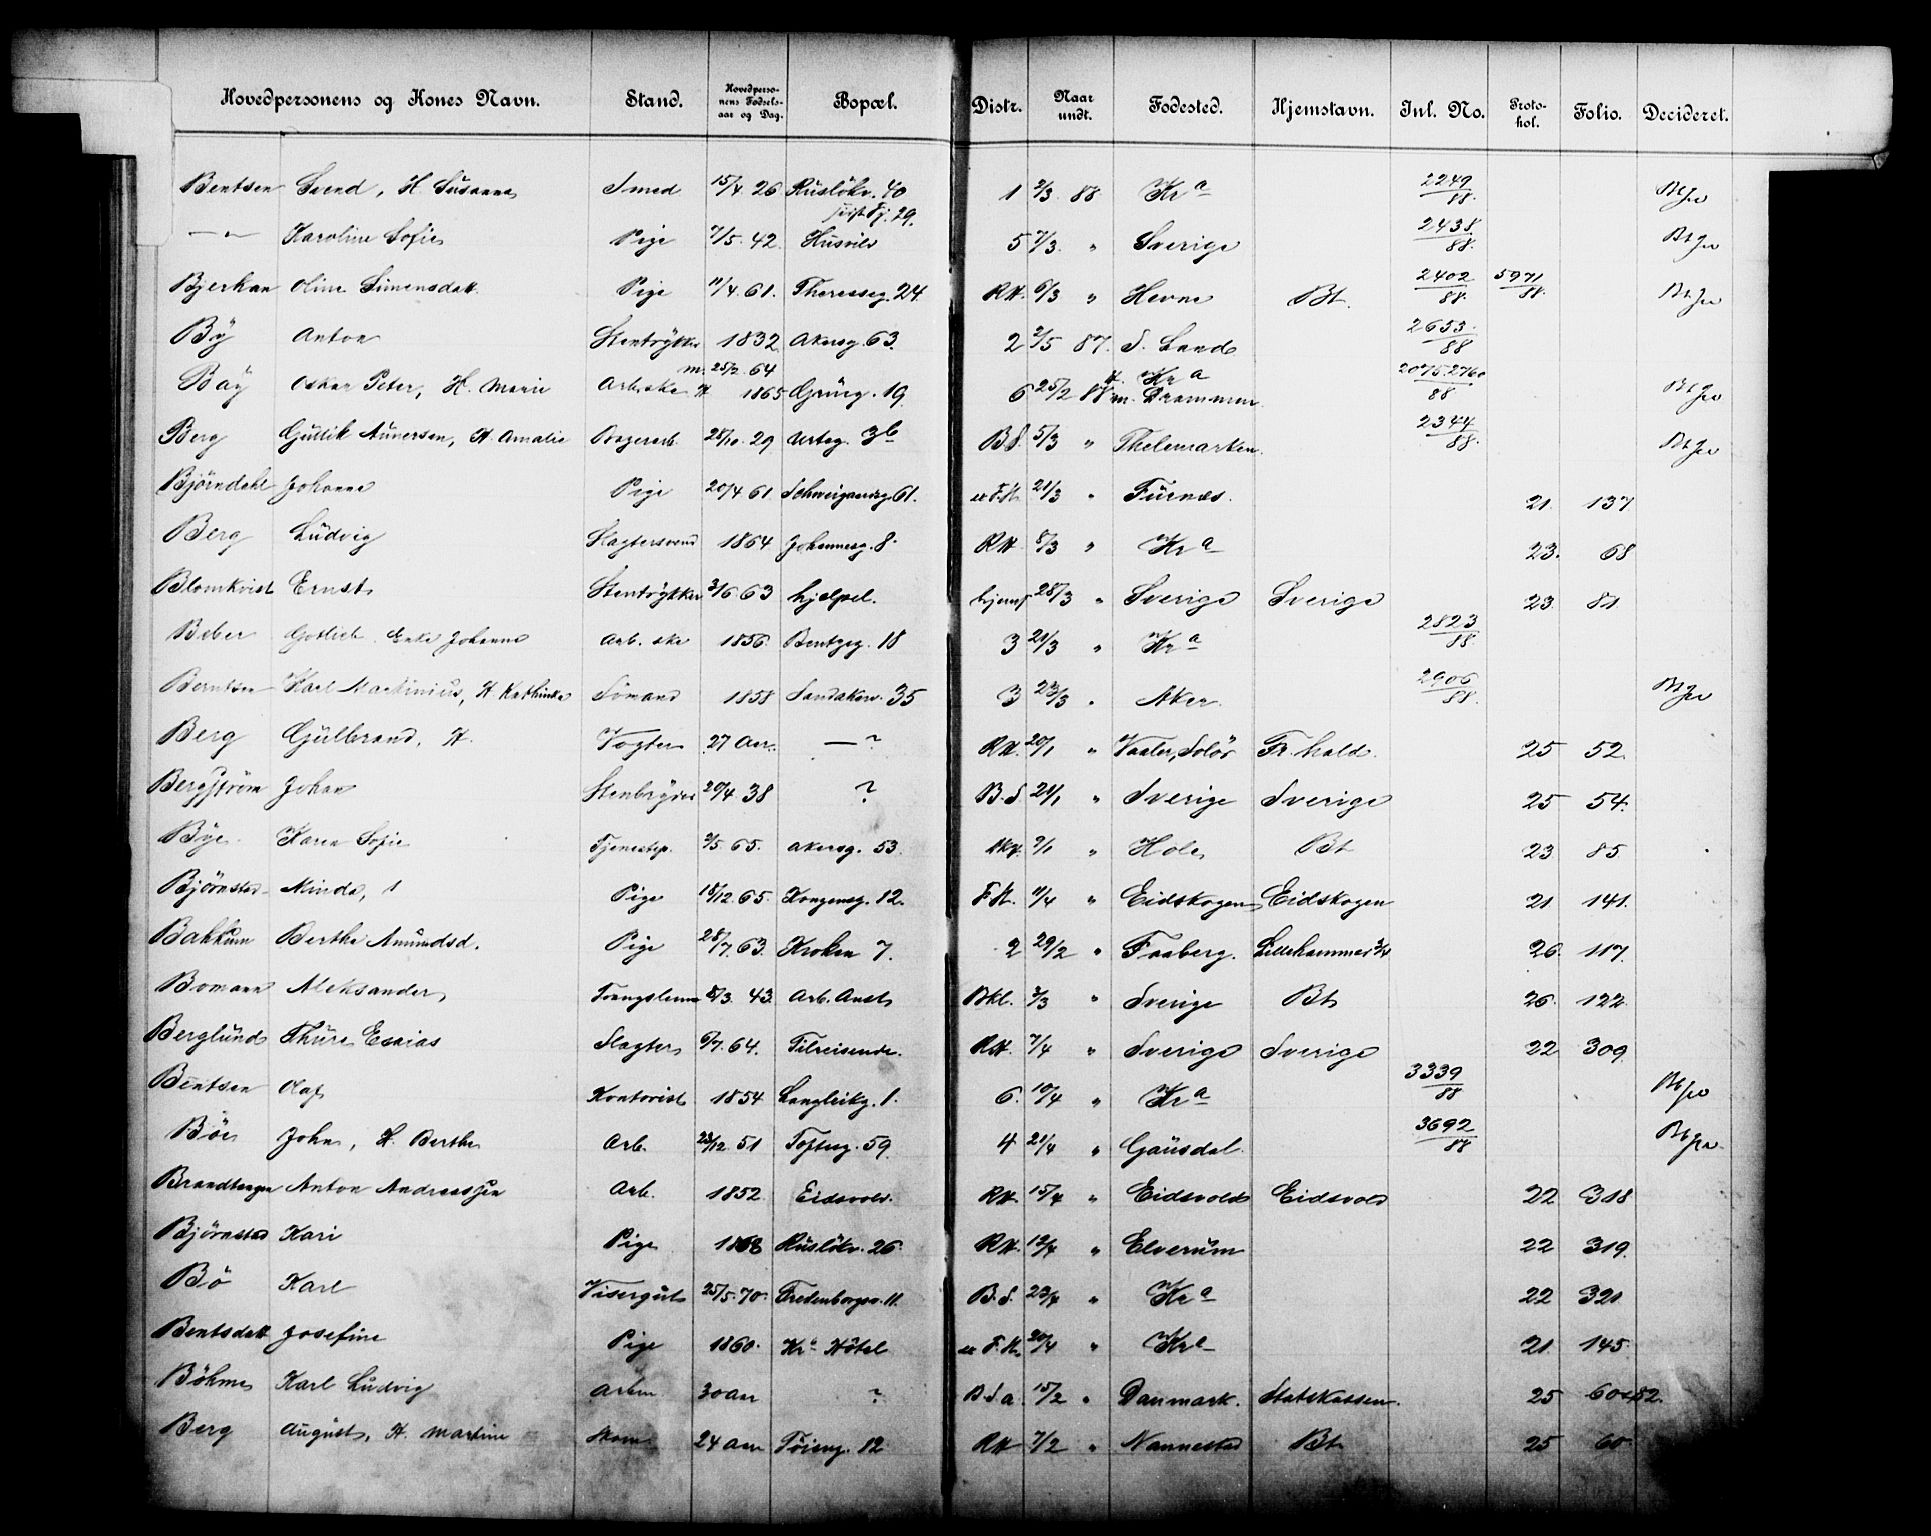 Hovedpersonens og Kones Navn. Stand. Hovedperso- nens Fødsels- aar og Dag. Bopæl. Distr. Naar undt. Fødested. Hjemstavn. Inl. No. Proto- kol. Folio. Decideret.
Bentsen Svend, H. Susanna Smed 15/4 26 Rusløkv. 40 1 2/3 88 Kra 2249/88.
— " — Karoline Sofie Pige 7/5 42. Husvild 5 7/3 " Sverige 2438/88.
Bjerkan Oline Simensdatt. Pige 11/4 61. Theresesg. 24 RH. 6/3 " Hevne Bt. 2402/88 5971/88.
By Anton Stentrykker 1832 Akersg. 63. 2 2/5 87. S. Land 2653/88
Bay Oskar Peter, H. Marie Arb.ske m. 25/2 64 H 1865 Grüng. 19 6 25/2 88 H. Kra m. Drammen 2075.2760/88
Berg Gullik Aunersen, H. Amalie 28/10 29 Urteg. 3b B.S. 5/3 " Thelemarken 2344/88.
Bjørndahl Johanna Pige 20/4 61 Schweigaardsg. 61. 21/3 " Furnæs. 21. 137
Berg Ludvig Slagtersvend 1864 Johannesg. 8. RH. 8/3 " Kra 23. 68
Blomkvist Ernst Stentrykker 3/6 63 hjelpel. 28/3 " Sverige Sverige 23. 81
Beber Gotlieb Enke Johanna Arb. ske 1856. Bentzeg. 18 3 21/3 " Kra 2823/88.
Berntsen Karl Martinius, H. Kathinka Sömand 1858 Sandakerv. 35 3 23/3 " Aker. 2906/88.
Berg Gulbrand, H. Vogter 27 Aar. — ? RH. 20/1 " Vaaler, Solør Fr.hald. 25 52.
Bergström Johan 20/4 38 ? B.S 21/1 " Sverige Sverige 25 54.
Bye Karen Sofie Tjenestep. 2/5. 65. Akersg. 53. 9/1 " Hole Bt 23 85
Bjørnstad Minda, 1 Pige 18/12 65. Kongensg. 12. F.H. 11/4 " Eidskogen Eidskogen 21 141.
Bakkum Berthe Amundsd. Pige 28/7 63. Kroken 7. 2 29/2 " Faaberg. Lillehammer 26. 117.
Bomann Aleksander 8/3 43. Arb. Anst. 3/3 " Sverige Bt 26. 122
Berglund Thure Esaias Slagter 6/7. 64. Tilreisende. RH. 7/4 " Sverige Sverige 22 309.
Bentsen Olaf Kontorist 1854 Langleikg. 1. 6. 10/4 " Kra 3339/88
Böe John, H. Berthe Arb. 23/12 51 Tofteg. 59 4 21/4 " Gausdal. 3692/88
Brandtangen Anton Andreassen Arb. 1852. Eidsvold. RH. 15/4 " Eidsvold Eidsvold 22 318
Bjørnstad Kari Pige 1868 Rusløkv. 26. RH. 12/4 " Elverum 22 319.
Bö Karl Visergut 25/5. 70. Fredenborgv. 11. B.S. 23/4 " Kra 22 321
Bentsdatt Josefine Pige 1860. Kra Hôtel 20/4 " Kra 21 145.
Böhme Karl Ludvig 30 Aar ? 15/2 " Danmark. Statskassen. 25
Berg August, H. Martine Skom. 24 Aar Töieng. 12 RH 7/2 " Nannestad Bt 25 60